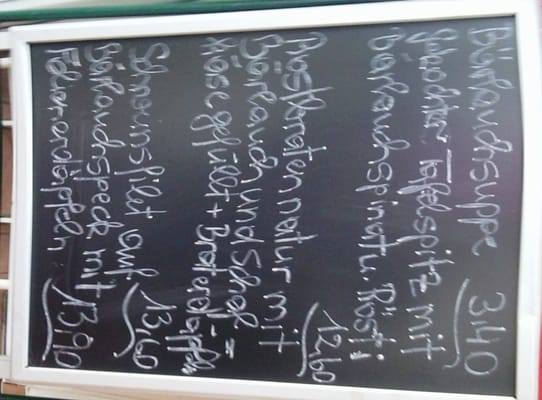 Bärlauchsuppe 3,40
gekochter Tafelspitz mit
Bärlauchspinat u. Rösti
12,60
Rostbraten natur mit
Bärlauch und Schaf=
käse gefüllt + Braterdäpfeln
13,60
Schweinsfilet auf
Bärlauchspeck mit
Folienerdäpfeln 13,90